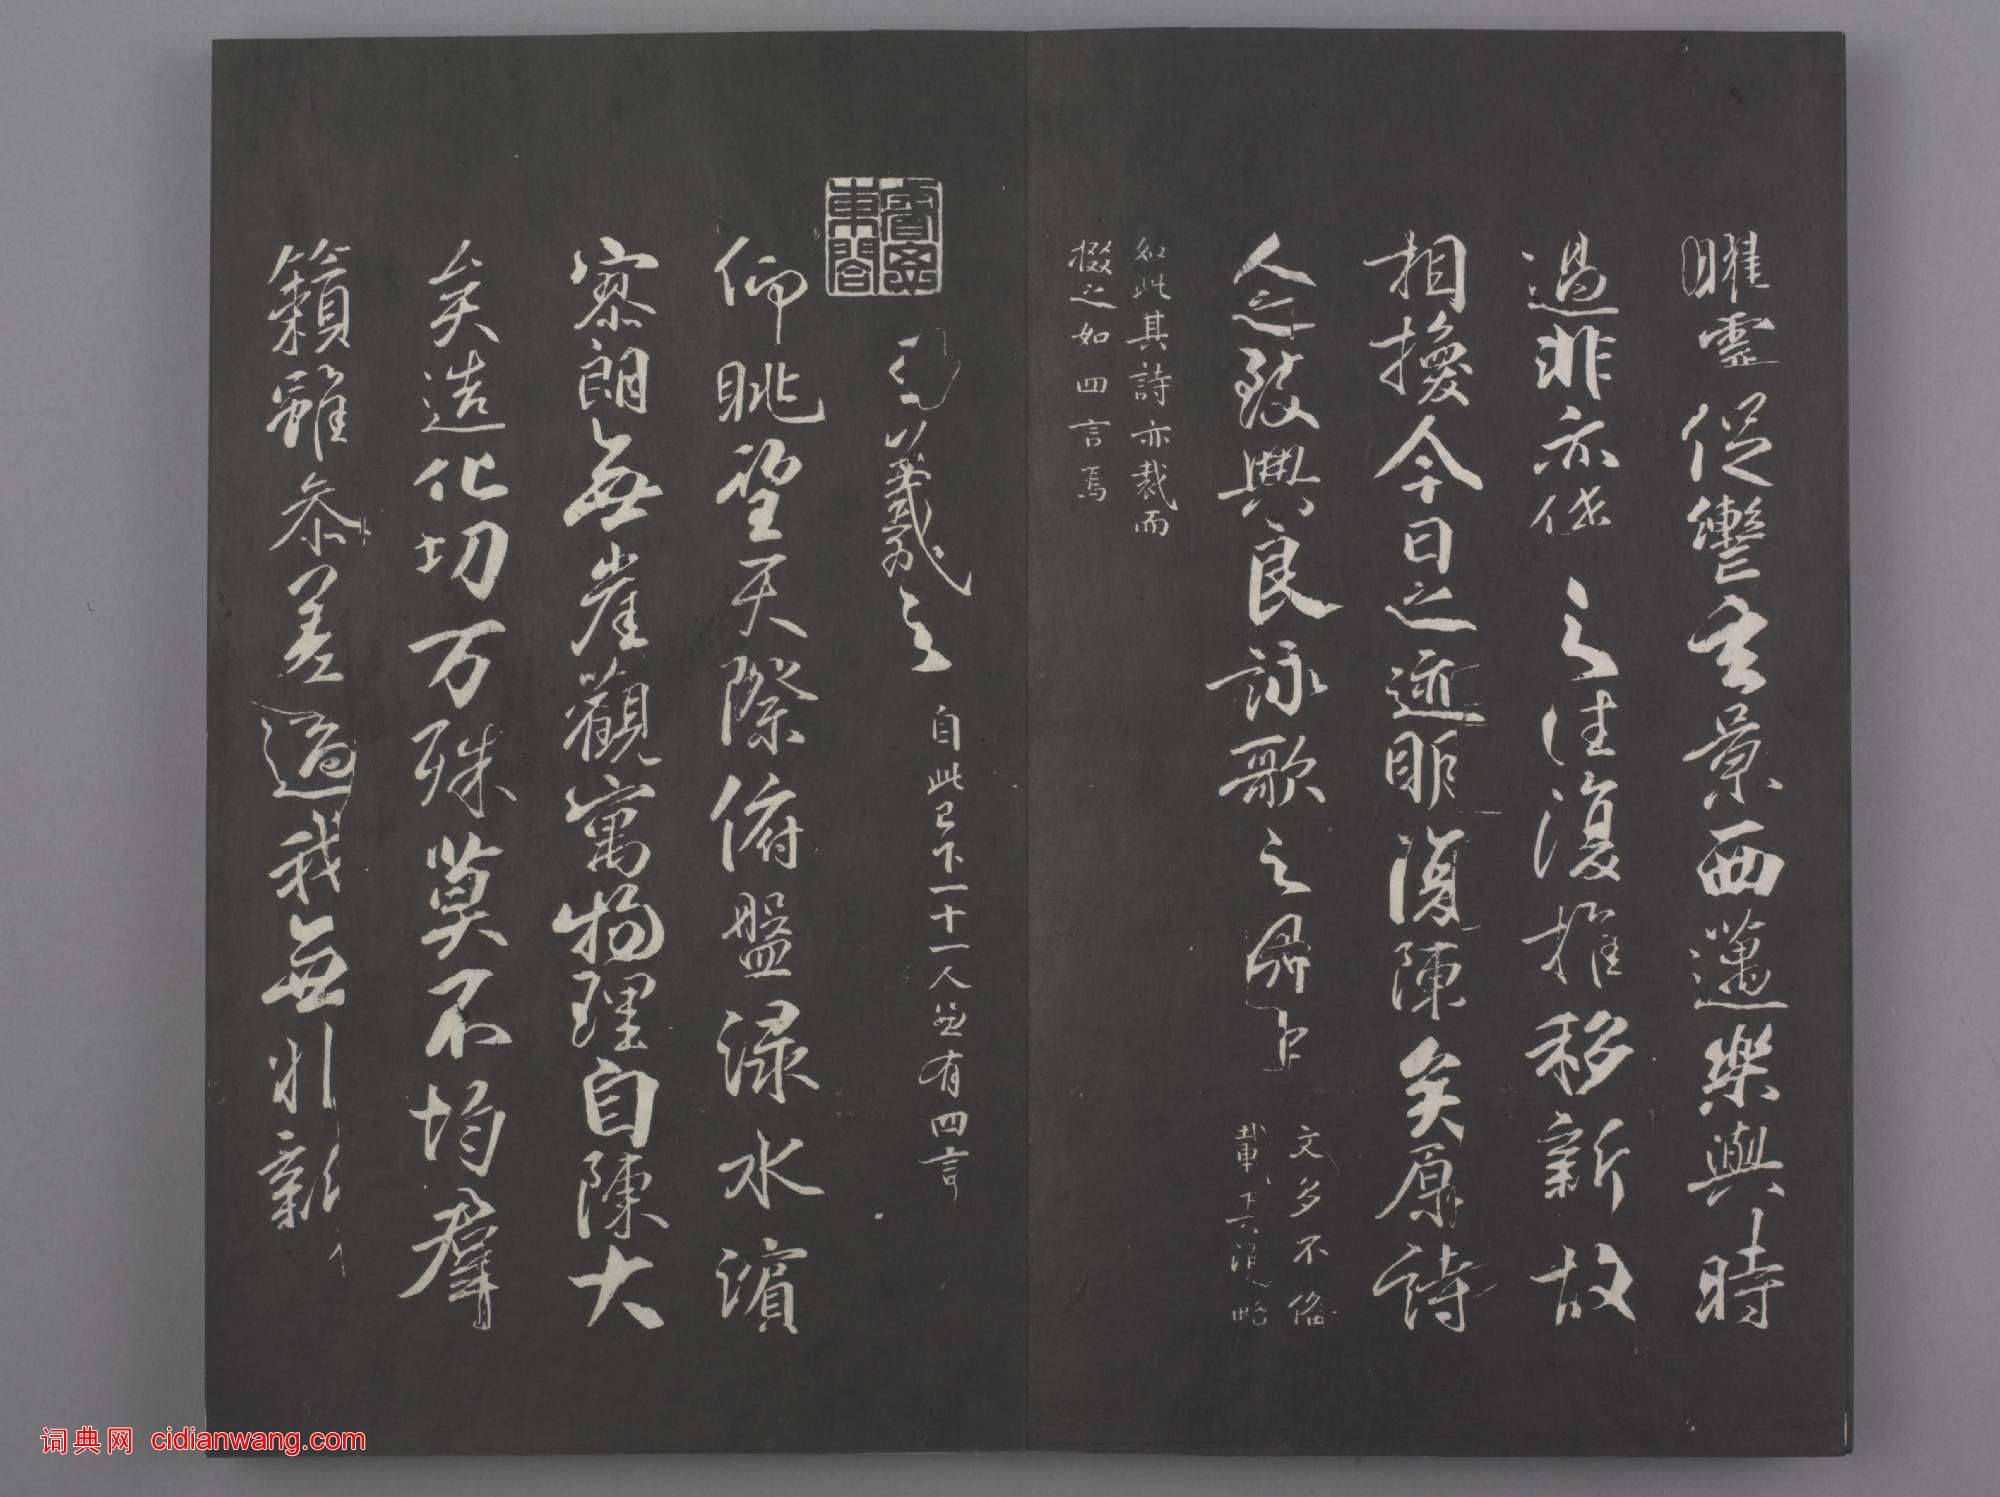 曜靈促轡玄景西邁樂與時
過非亦係之往復推移新故
相換今日之迹明復陳矣原詩
人之致興良詠歌之有由
文多不備
載其略
如此其詩亦裁而
掇之如四言焉
東閣
羲之 自此已下一十一人並有四言
仰眺望天際俯盤淥水濱
寥朗無崖觀寓物理自陳大
矣造化切万殊莫不均羣
籟雖參差適我無非新
词典网 cidianwang.com